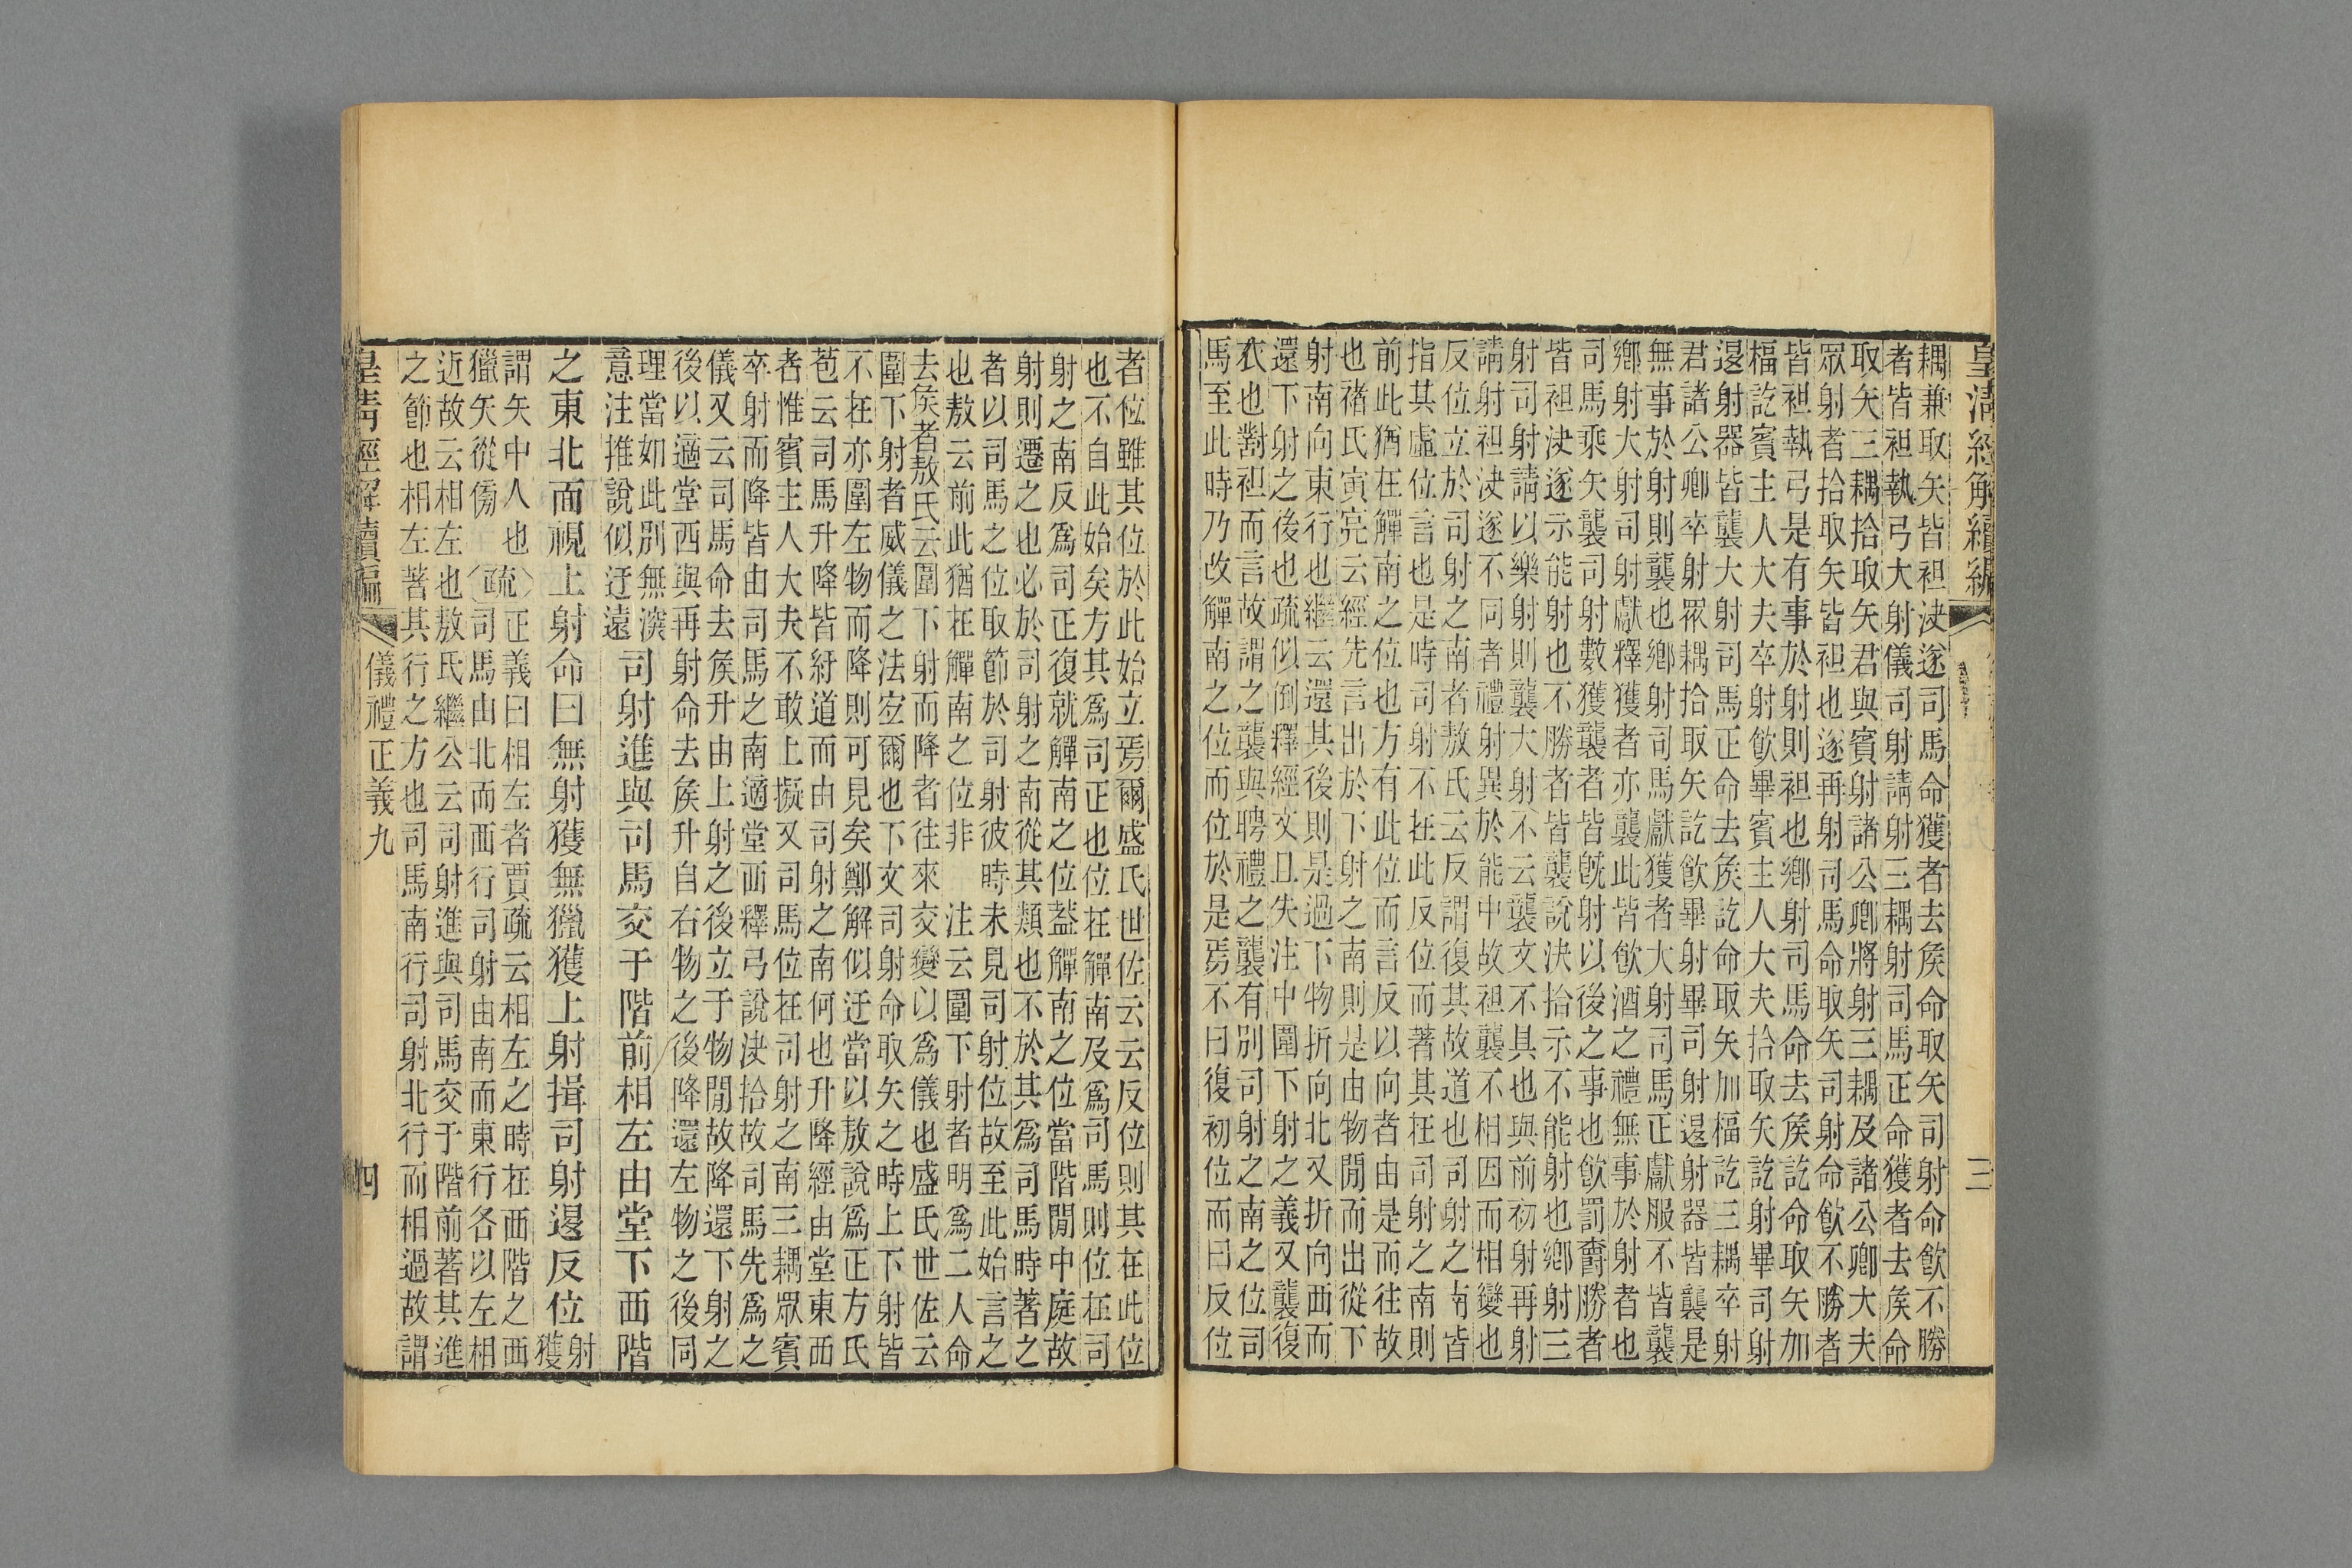 皇清經解續編
三
耦兼取矢皆袒決遂司馬命獲者去矦命取矢司射命飮不勝
者皆袒執弓大射儀司射請射三耦射司馬正命獲者去矦命
取矢三耦拾取矢君與賓射諸公卿將射三耦及諸公卿大夫
眾射者拾取矢皆袒也遂再射司馬命取矢司射命飮不勝者
皆袒執弓是有事於射則袒也鄉射司馬命去矦訖命取矢加
楅訖賓主人大夫卒射飮畢賓主人大夫拾取矢訖射畢司射
退射器皆襲大射司馬正命去矦訖命取矢加楅訖三耦卒射
君諸公卿卒射眾耦拾取矢訖飮畢射畢司射退射器皆襲是
無事於射則襲也鄉射司馬獻獲者大射司馬正獻服不皆襲
鄉射大射司射獻釋獲者亦襲此皆飮酒之禮無事於射者也
司馬乘矢襲司射數獲襲者皆旣射以後之事也飮罰爵勝者
皆袒決遂示能射也不勝者皆襲說決拾示不能射也鄉射三
射司射請以樂射則襲大射不云襲文不具也與前初射再射
請射袒決遂不同者禮射異於能中故袒襲不相因而相變也
反位立於司射之南者敖氏云反謂復其故道也司射之南皆
指其虛位言也是時司射不在此反位而著其在司射之南則
前此猶在觶南之位也方有此位而言反以向者由是而往故
也褚氏寅亮云經先言出於下射之南則是由物閒而出從下
射南向東行也繼云還其後則是過下物折向北又折向西而
還下射之後也疏似倒釋經文且失注中圍下射之義又襲復
衣也對袒而言故謂之襲與聘禮之襲有別司射之南之位司
馬至此時乃改觶南之位而位於是焉不曰復初位而曰反位
者位雖其位於此始立焉爾盛氏世佐云云反位則其在此位
也不自此始矣方其爲司正也位在觶南及爲司馬則位在司
射之南反爲司正復就觶南之位葢觶南之位當階閒中庭故
射則遷之也必於司射之南從其類也不於其爲司馬時著之
者以司馬之位取節於司射彼時未見司射位故至此始言之
也敖云前此猶在觶南之位非　注云圍下射者明爲二人命
去矦者敖氏云圍下射而降者往來交變以爲儀也盛氏世佐云
圍下射者威儀之法宐爾也下文司射命取矢之時上下射皆
不在亦圍左物而降則可見矣鄭解似迂當以敖說爲正方氏
苞云司馬升降皆紆道而由司射之南何也升降經由堂東西
者惟賓主人大夫不敢上擬又司馬位在司射之南三耦眾賓
卒射而降皆由司馬之南適堂西釋弓說決拾故司馬先爲之
儀又云司馬命去矦升由上射之後立于物閒故降還下射之
後以適堂西與再射命去矦升自右物之後降還左物之後同
理當如此別無深
意注推說似迂遠
司射進與司馬交于階前相左由堂下西階
之東北面視上射命曰無射獲無獵獲上射揖司射退反位
射
獲
謂矢中人也
獵矢從傍
〔疏〕
正義曰相左者賈疏云相左之時在西階之西
司馬由北而西行司射由南而東行各以左相
近故云相左也敖氏繼公云司射進與司馬交于階前著其進
之節也相左著其行之方也司馬南行司射北行而相過故謂
皇清經解續編
儀禮正義九
四